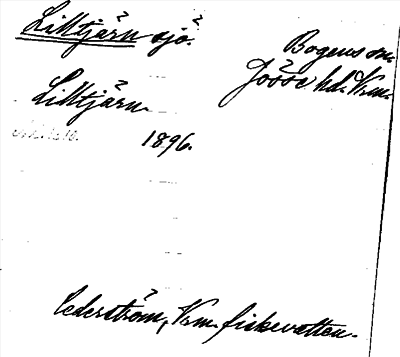 Lilltjärn sjö?
Bogens sn.
Jösse hd. Vrm.
Lilltjärn.
1896.
Cederström, Vrm. fiskevatten.